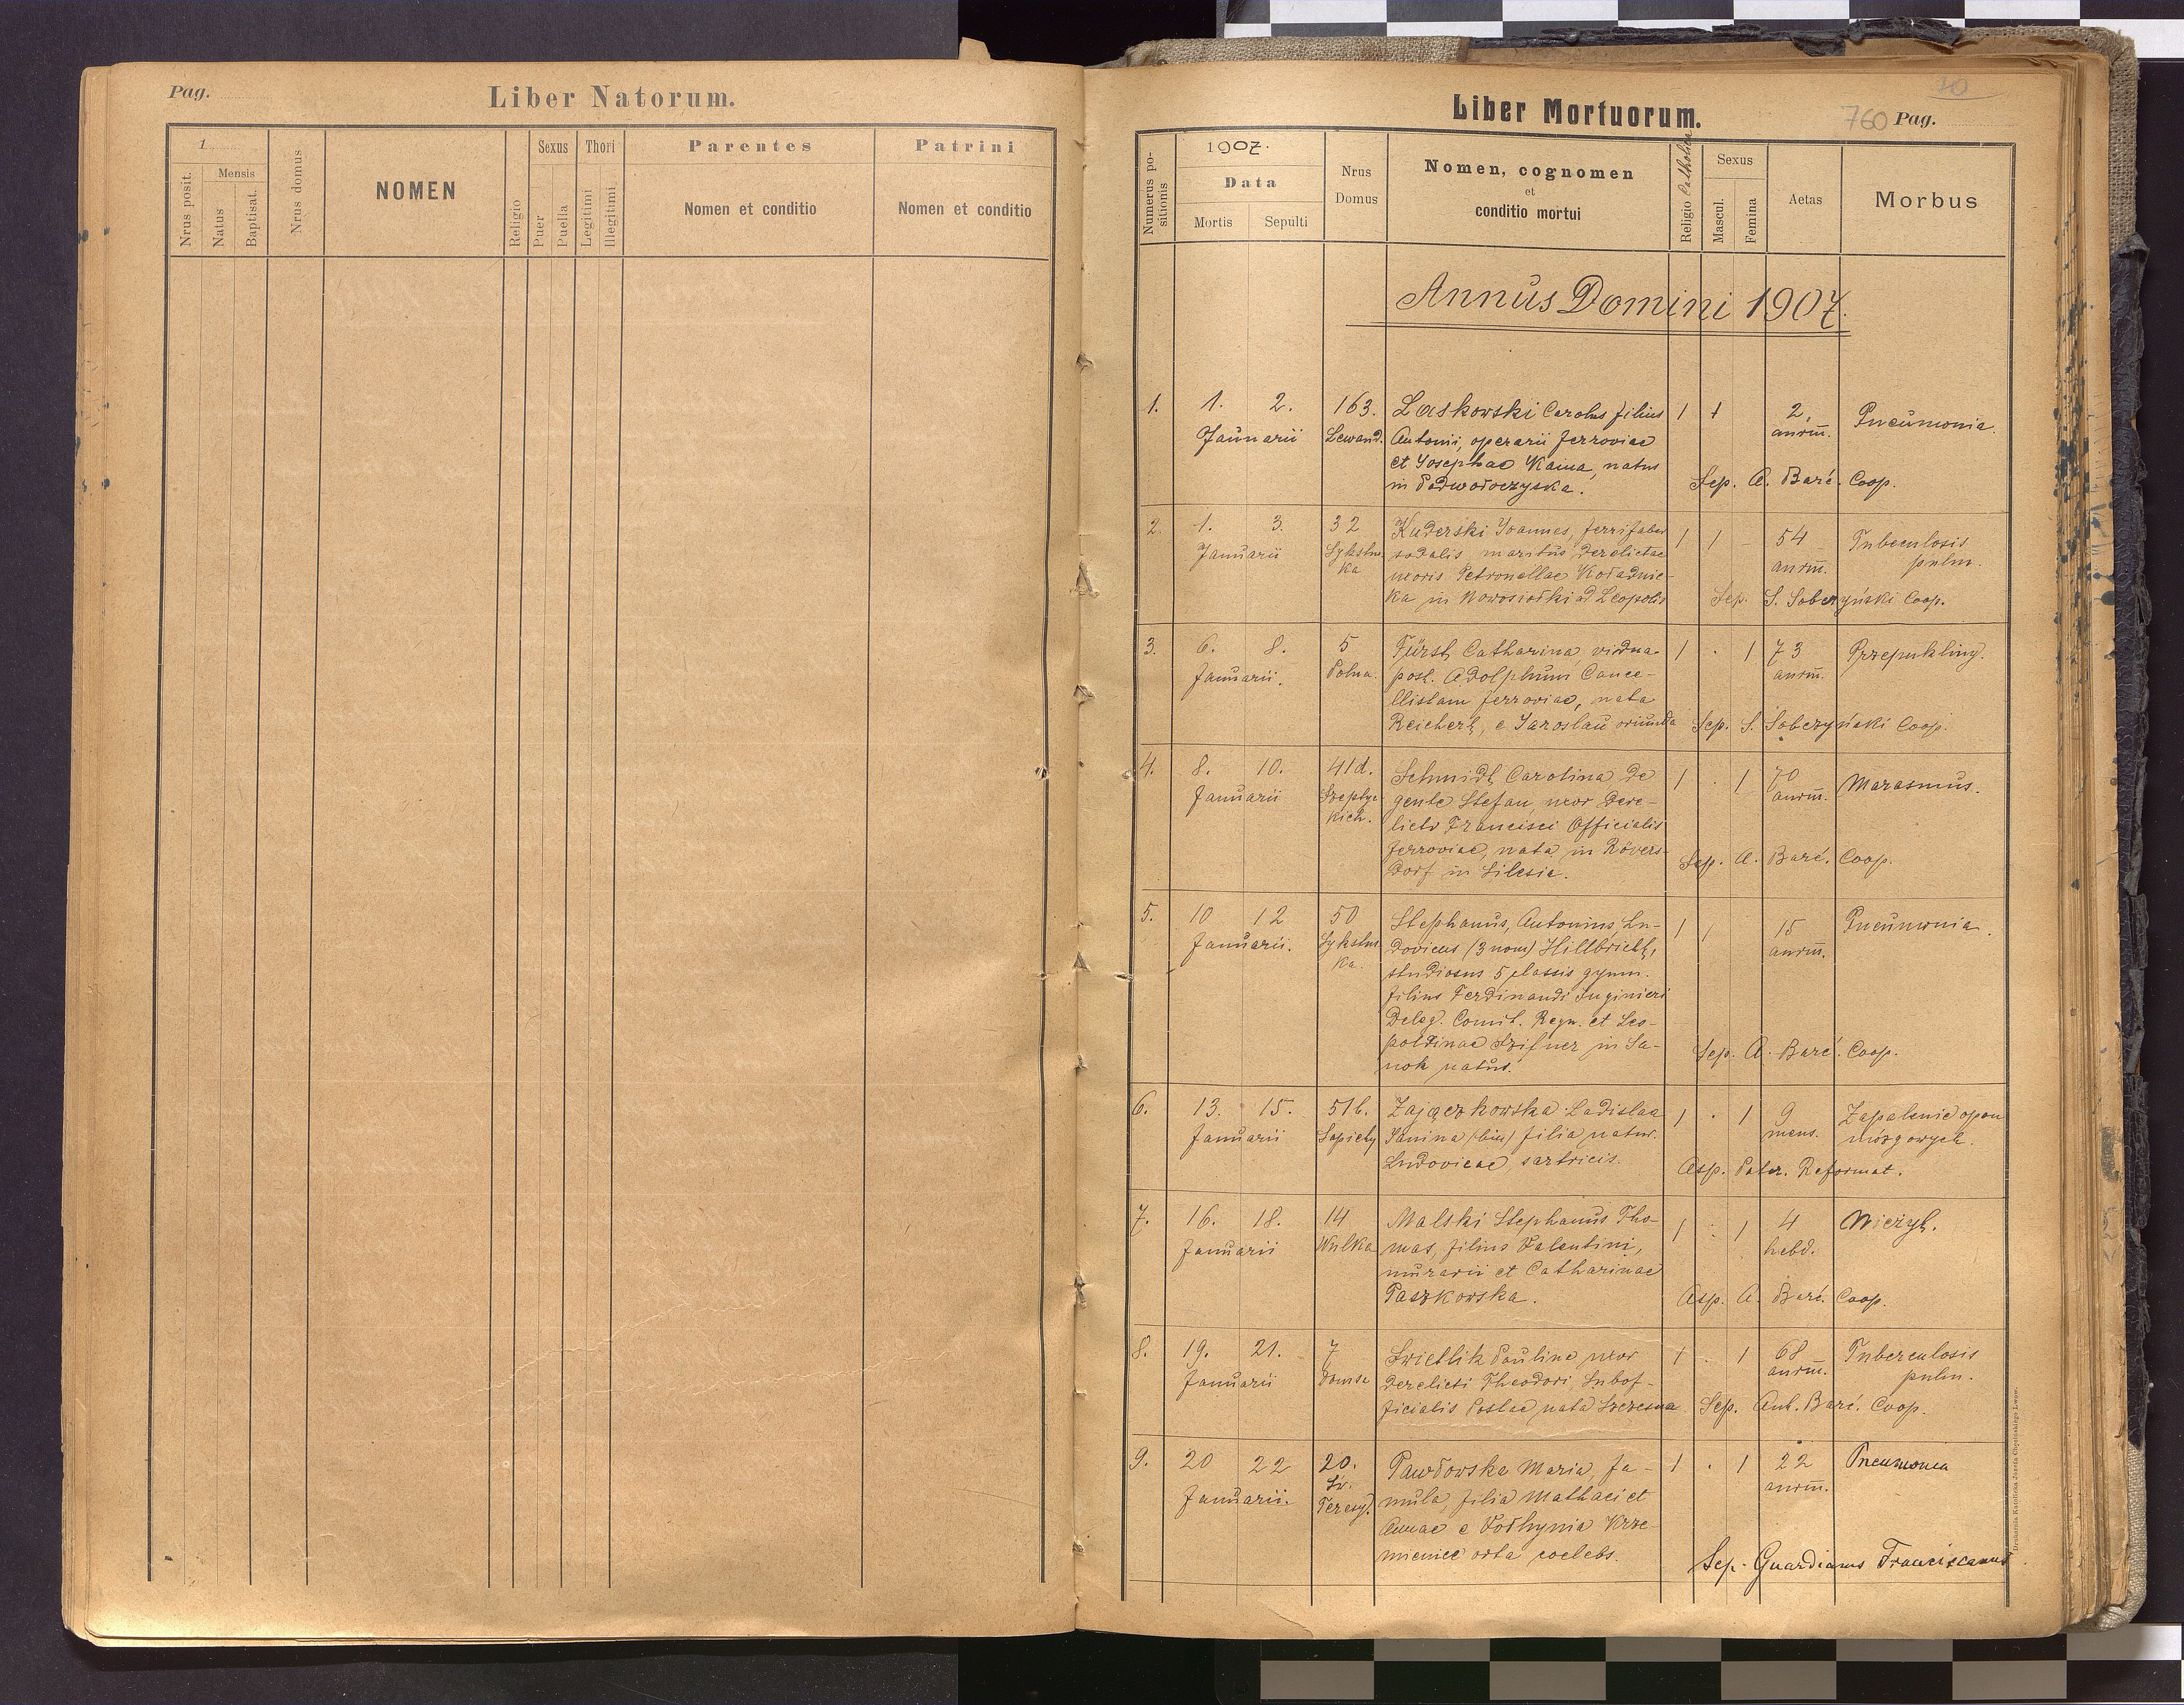 Pag.
Liber Natorum.
1
Nrus posit.
Mensis
Natus
Baptisat.
Nrus domus
NOMEN
Religio
Sexus
Puer
Puella
Thori
Legitimi
Illegitimi
Parentes
Nomen et conditio
Patrini
Nomen et conditio
70
Liber Mortuorum.
760 Pag.
Numerus po-
sitionis
1907.
Data
Mortis
Sepulti
Nrus
Domus
Nomen, cognomen
et
conditio mortui
Religio Catholica
Sexus
Mascul.
Femina
Aetas
Morbus
Annus Domini 1907.
1. 1. 2. 163. Laskowski Carolus filius 1 1 2. Pneumonia.
Januarii Lewand. Antonii, operarii ferroviae anrm.
et Josephae Kaina, natus
in Podwołoczyska. Sep. A. Baré. Coop.
2. 1. 3. 32 Kuderski Joannes, ferrifaber 1 1 - 54 Tubeculosis
Januarii Sykstus sodalis, maritus derelictae anrm. pulm.
ka uxoris Petronellae Koładnic-
ka in Nowosiołki ad Leopolis Sep. S. Sobczyński Coop.
3. 6. 8. 5 Fürst Catharina, vidua 1 . 1 73 Przepukliny.
Januarii. Polna. post. Adolphum Cance- anrm.
llistam ferroviae, nata
Reichert, e Jaroslau oriunda Sep. S. Sobczyński Coop.
4. 8. 10. 41d. Schmidt Carolina de 1 . 1 70 Marasmus.
Januarii Szepty- gente Stefan, uxor dere- anrm.
kich. licto Francisci Officialis
ferroviae, nata in Rövers-
dorf in Silesia. Sep. A. Baré. Coop.
5. 10 12 50 Stephanus, Antonius, Lu- 1 1 15 Pneumonia.
Januarii. Sykstus dovicus (3 nom) Hillbricht, anrm.
ka. studiosus 5 classis gymn.
filius Ferdinandi Inginieri
Deleg. Comit. Regn. et Leo-
poldinae Szifner in Sa- Sep. A. Baré. Coop.
nok natus.
6. 13. 15. 51b. Zajączkowska Ladislaa 1 . 1 9 Zapalenie opon
Januarii Sapiehy Janina (bin) filia natur. mens. mózgowych.
Ludovicae, sartricis. Asp. Pater. Reformat.
7. 16. 18. 14 Malski Stephanus Tho- 1 . 1 4 Nieżyt.
Januarii Wulka mas, filius Valentini, hebd.
murarii et Catharinae
Paszkowska. Asp. A. Baré. Coop.
8. 19. 21. 7 Swietlik Paulina uxor 1 . 1 68 Tuberculosis
Januarii Domsa derelicti Theodori, Subof- anrm. pulm.
ficialis Postae nata Szczesna Sep. Ant. Baré. Coop.
9. 20 22 20. Pawłowska Maria, fa- 1 . 1 22 Pneumonia
Januarii. Św. Teresy. mula, filia Mathaei et anrm.
Annae e Vołhynia Krze-
mieniec orta coelebs. Sep. Guardianus Franciscanus.